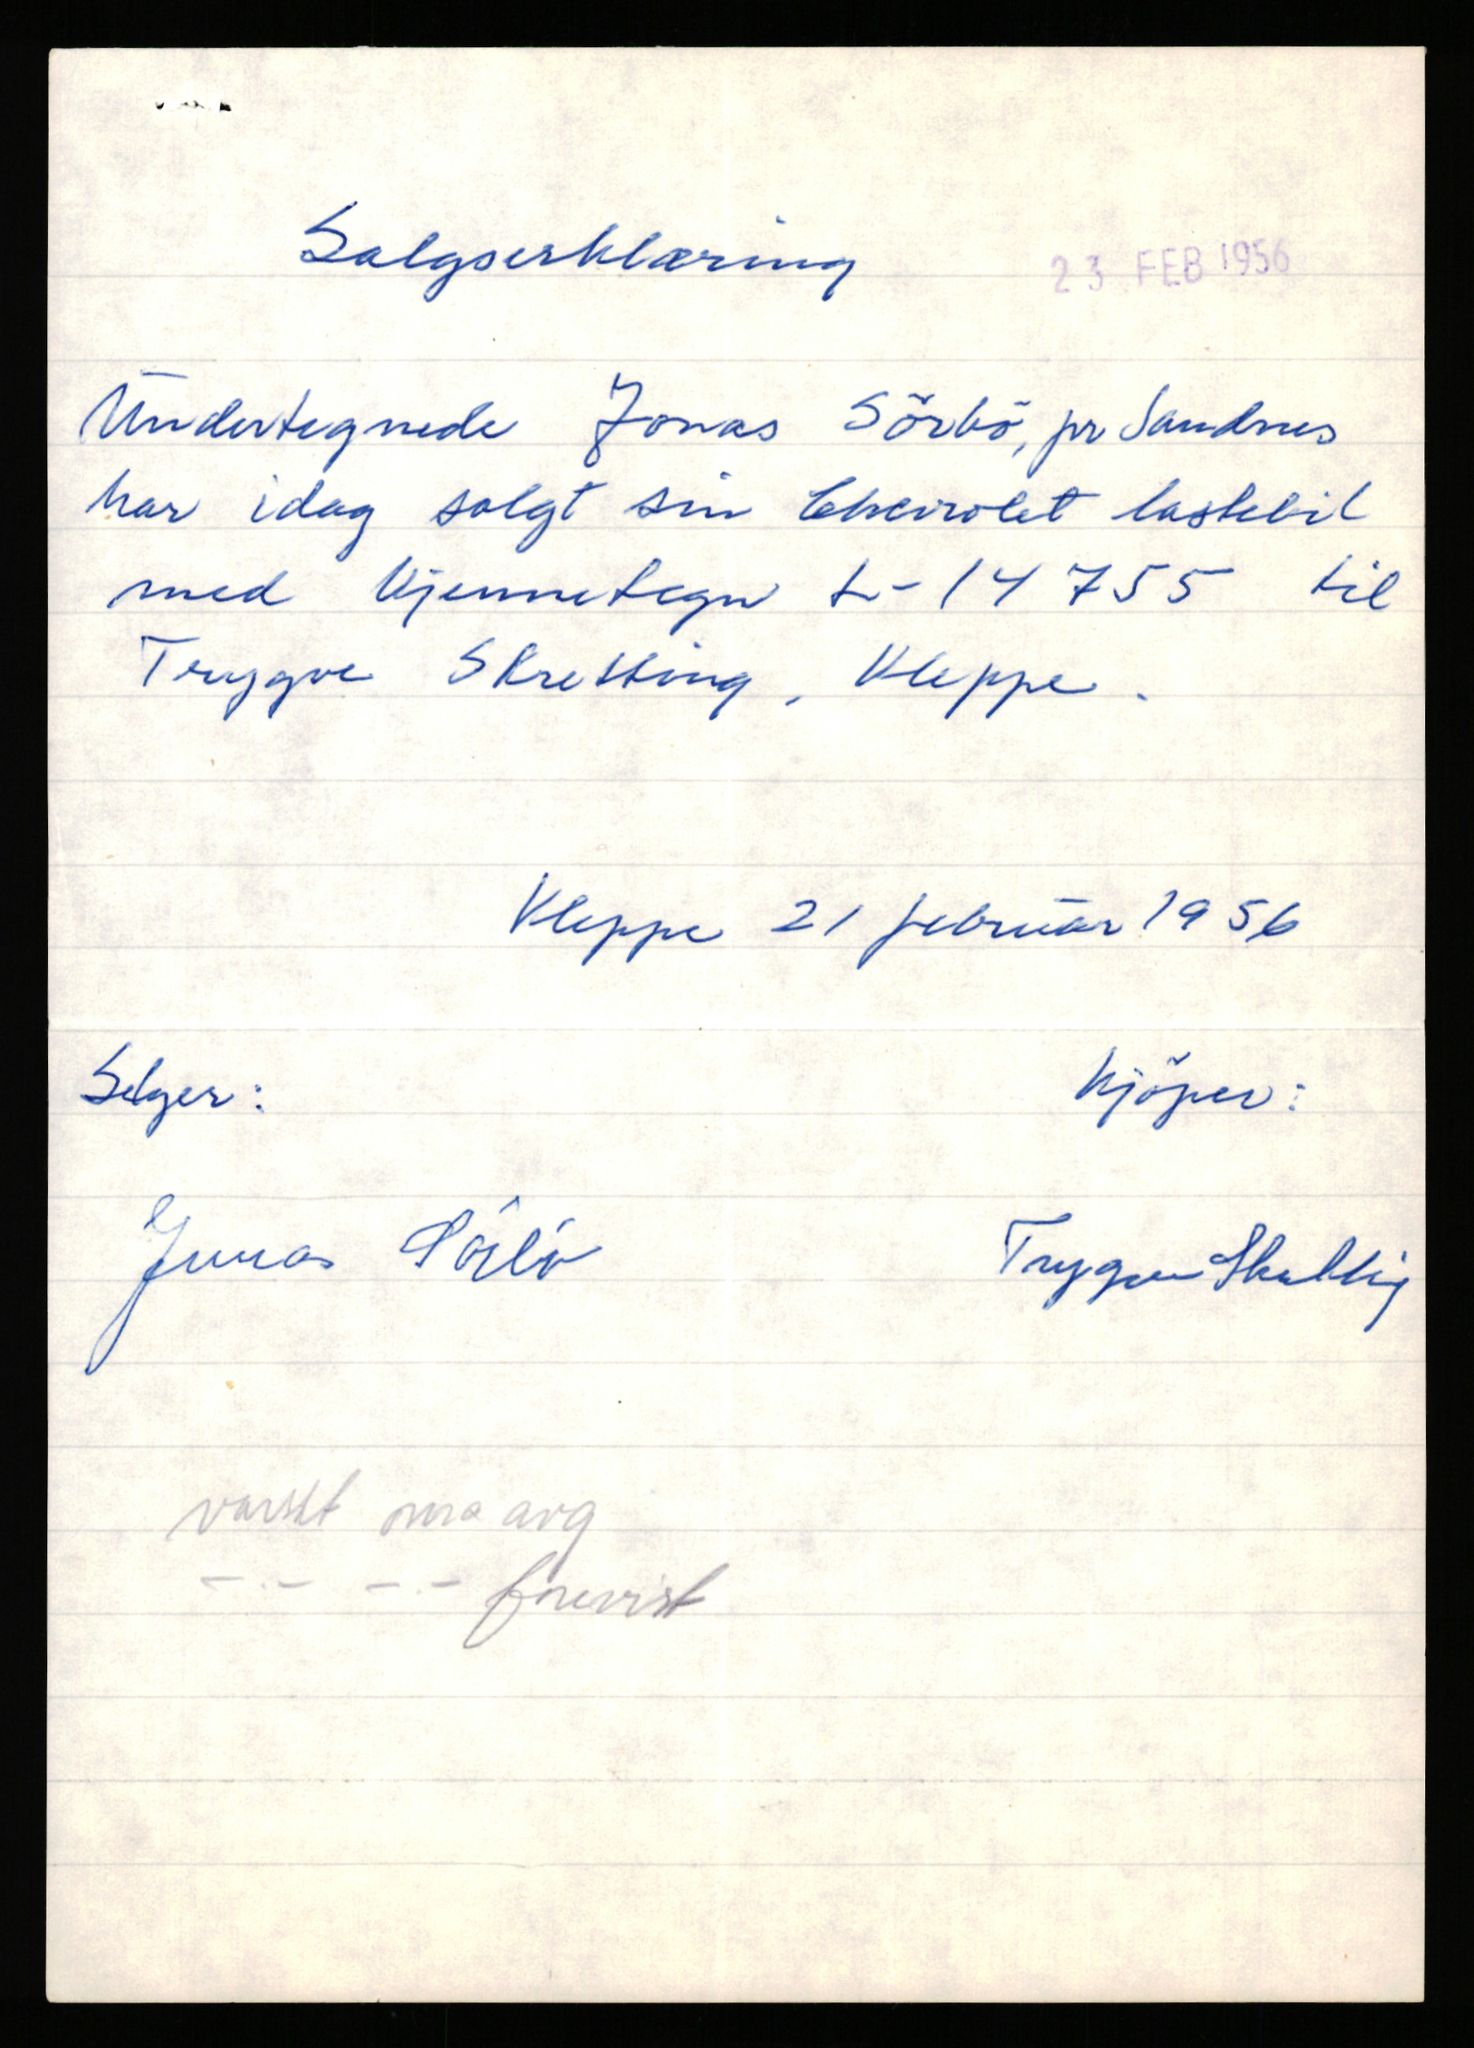 Salgserklæring
23 FEB 1956
Undertegnede Jonas Sörbö, pr Sandnes
har idag solgt sin Chevrolet lastebil
med kjennetegn L-14755 til
Trygve Skretting, Kleppe.
Kleppe 21 februar 1956
Selger:
Kjöper:
Jonas Sörbö
Trygve Skretting
varslt oms avg
-"- -"- forevist